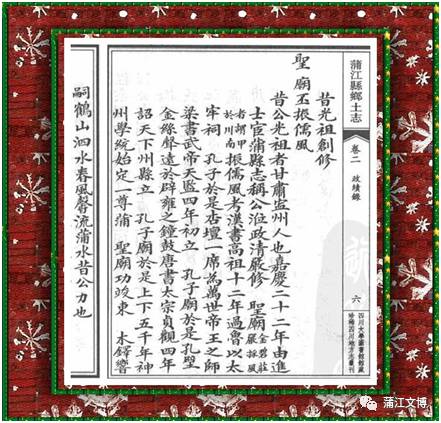 蒲江縣鄉土志 卷二 政績錄 六
四川大學圖書館館藏
珍稀四川地方志叢刊
昔光祖創修
聖廟丕振儒風
昔公光祖者甘肅宜州人也嘉慶二十二年由進
士宦蒲縣志稱公涖政清嚴修 聖廟金碧莊嚴採風
者謂甲於川南振儒風考漢書高祖十二年過魯以太
牢祠 孔子於是杏壇一席為萬世帝王之師
梁書武帝天監四年初立 孔子廟於是孔壁
金絲聲遠於辟雍之鐘鼓唐書太宗貞觀四年
詔天下州縣立 孔子廟於是上下五千年神
州學統始定一尊蒲 聖廟功竣東 木鐸響
嗣鶴山泗水春風聲流蒲水昔公力也
蒲江文博